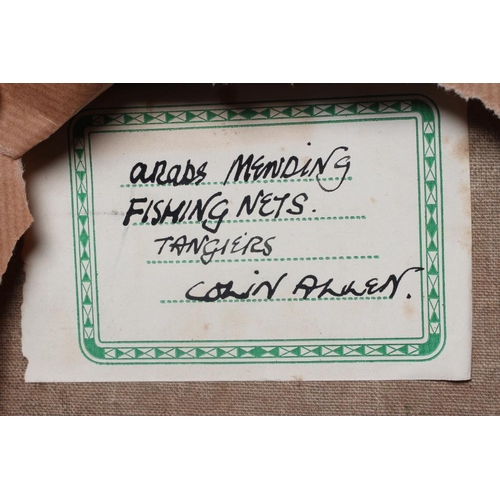 ARABS MENDING
FISHING NETS.
TANGIERS
COLIN ALLEN.